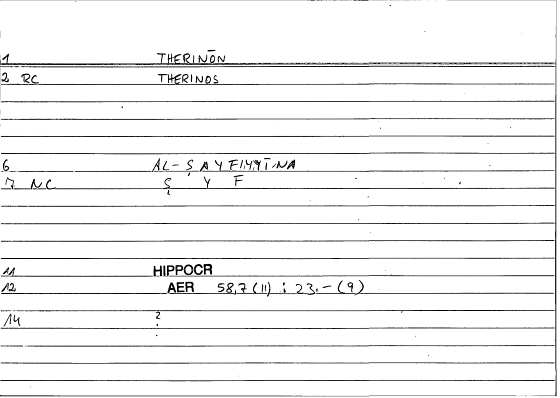 1 THERINŌN
2 RC THERINOS
6 AL-ṢAYFIYYĪNA
7 NC Ṣ Y F
11 HIPPOCR
12 AER 58,7 (11) : 23.- (9)
14